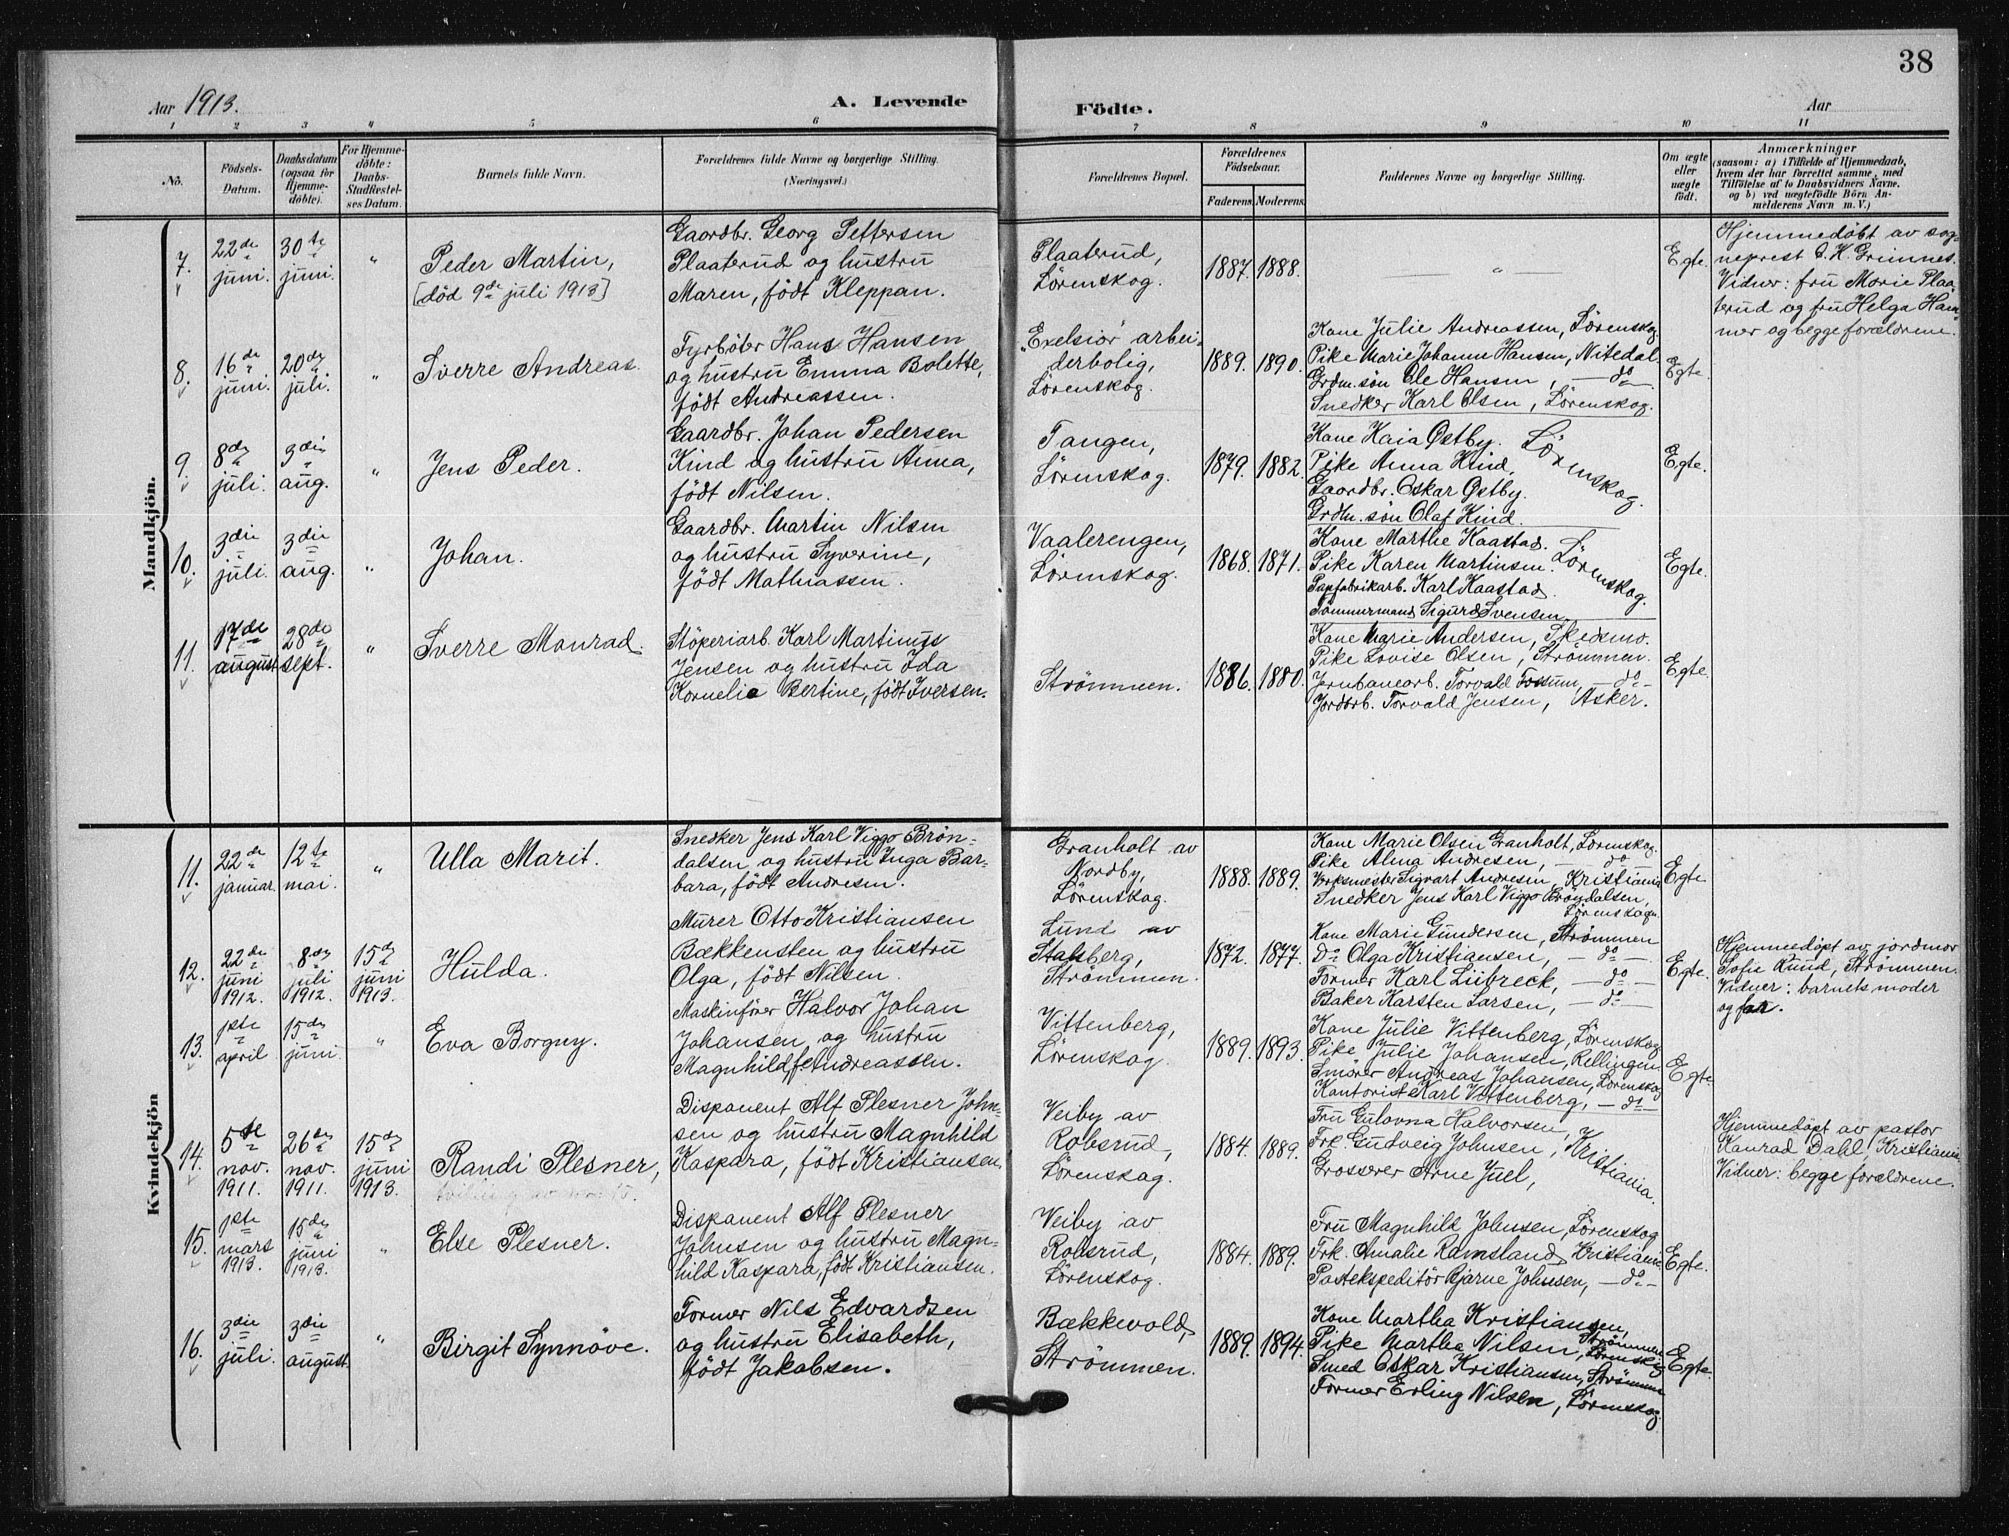 38
Aar 1913.
A. Levende
Födte.
Aar
1 2 3 4 5 6 7 8 9 10 11
No.
Födsels-
Datum.
Daabsdatum
(ogsaa for
Hjemme-
döbte).
For Hjemme-
döbte:
Daabs-
Stadfæstel-
ses Datum.
Barnets fulde Navn.
Forældrenes fulde Navne og borgerlige Stilling.
(Næringsvei.)
Forældrenes Bopæl.
Forældrenes
Födselsaar.
Faderens. Moderens.
Faddernes Navne og borgerlige Stilling.
Om ægte
eller
uægte
födt.
Anmærkninger
(saasom: a) i Tilfælde af Hjemmedaab,
hvem der har forrettet samme, med
Tilföielse af to Daabsvidners Navne,
og b) ved uægtefödte Börn An-
melderens Navn m. V.)
Mandkjön.
7.
22de
juni.
30te
juni.
"
Peder Martin,
[død 9de juli 1913]
Gaardbr. Georg Pettersen
Plaaterud og hustru
Maren, født Kleppan.
Plaaterud,
Lørenskog.
1887. 1888.
— " —
Egte.
Hjemmedøbt av sog-
neprest O. K. Grimnes.
Vidner: fru Marie Plaa-
terud og fru Helga Ham-
mer og begge forældrene.
8.
16de
juni.
20de
juli.
"
Sverre Andreas.
Fyrbøter Hans Hansen
og hustru Emma Bolette,
født Andreassen.
"Exelsior" arbei-
derbolig,
Lørenskog.
1889. 1890.
Kone Julie Andreassen, Lørenskog
Pike Marie Johanne Hansen, Nitedal.
Grdm. søn Ole Hansen, — do —
Snedker Karl Olsen, Lørenskog.
Egte.
9.
8de
juli.
3die
aug.
"
Jens Peder.
Gaardbr. Johan Pedersen
Kind og hustru Anna,
født Nilsen.
Tangen,
Lørenskog.
1879. 1882.
Kone Kaia Østby. Lørenskog.
Pike Anna Kind,
Gaardbr. Oskar Østby.
Grdm. søn Olaf Kind.
Egte.
10.
3die
juli.
3die
aug.
"
Johan.
Gaardbr. Martin Nilsen
og hustru Syverine,
født Mathiassen.
Vaalerengen,
Lørenskog.
1868. 1871.
Kone Marthe Kaastad. Lørenskog.
Pike Karen Martinsen.
Papfabrikarb. Karl Kaastad.
Tømmermand Sigurd Svensen.
Egte.
11.
17de
august
28de
sept.
"
Sverre Monrad.
Støperiarb. Karl Martinus
Jensen og hustru Ida
Kornelie Bertine, født Iversen.
Strømmen.
1886. 1880.
Kone Marie Andersen, Skedsmo.
Pike Lovise Olsen, Strømmen.
Jernbanearb. Torvald Fossum, — do —
Jordbrb. Torvald Jensen, Asker.
Egte.
Kvindekjön
11.
22de
januar.
12te
mai.
"
Ulla Marit.
Snedker Jens Karl Viggo Brøn-
dalsen og hustru Inga Bar-
bara, født Andresen.
Granholt av
Nordby,
Lørenskog.
1888. 1889.
Kone Marie Olsen Granholt, Lørenskog.
Pike Alma Andresen, — do —
Verksmester Sigvart Andresen, Kristiania
Snedker Jens Karl Viggo Brøndalsen,
Lørenskog.
Egte
12.
22de
juni
1912.
8de
juli
1912.
15de
juni
1913.
Hulda.
Murer Otto Kristiansen
Bækkensten og hustru
Olga, født Nilsen.
Lund av
Stalsberg,
Strømmen.
1872. 1877.
Kone Marie Gundersen, Strømmen
Do Olga Kristiansen, — do —
Former Karl Lübreck, — do —
Baker Karsten Larsen, — do —
Egte.
Hjemmedøpt av jordmor
Sofie Rund, Strømmen.
Vidner: barnets moder
og far.
13.
1ste
april
15de
juni
"
Eva Borgny.
Maskinfører Halvor Johan
Johansen og hustru
Magnhild, f. Andreassen.
Vittenberg,
Lørenskog.
1889. 1893.
Kone Julie Vittenberg, Lørenskog
Pike Julie Johansen, Rellingen
Smører Andreas Johansen, Lørenskog
Kontorist Karl Vittenberg, — do —
Egte.
14.
5te
nov.
1911.
26de
nov.
1911.
15de
juni
1913.
Randi Plesner,
Disponent Alf Plesner John-
sen og hustru Magnhild
Kaspara, født Kristiansen.
Veiby av
Robsrud,
Lørenskog.
1884. 1889.
Fru Gulovna Halvorsen, Kristiania.
Frk. Gudveig Johnsen,
Grosserer Arne Juel,
Hjemmedøpt av pastor
Konrad Dahl, Kristiania
Vidner: begge forældrene.
15.
1ste
mars
1913.
15de
juni
1913.
"
Else Plesner.
Disponent Alf Plesner
Johnsen og hustru Magn-
hild Kaspara, født Kristiansen.
Veiby av
Robsrud,
Lørenskog.
1884. 1889.
Fru Magnhild Johnsen, Lørenskog
Frk. Amalie Ramsland, Kristiania
Postekspeditør Bjarne Johnsen, — do —
Egte.
16.
3die
juli.
3die
august.
"
Birgit Synnøve.
Former Nils Edvardsen
og hustru Elisabeth,
født Jakobsen.
Bækkevold,
Strømmen.
1889. 1894.
Kone Martha Kristiansen, Strømmen
Pike Martha Nilsen, Lørenskog
Smed Oskar Kristiansen, Strømmen
Former Erling Nilsen, Lørenskog.
Egte.